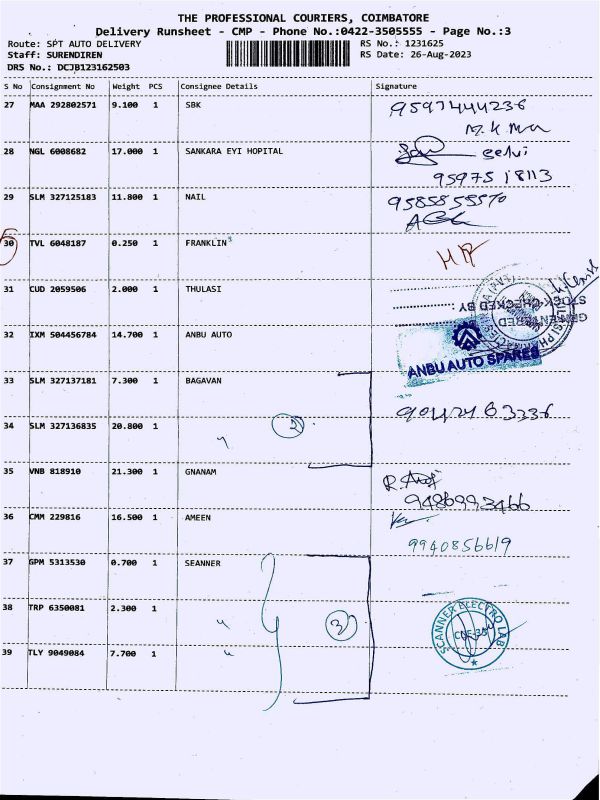 THE PROFESSIONAL COURIERS, COIMBATORE
Delivery Runsheet - CMP - Phone No.:0422-3505555 - Page No.:3
Route: SPT AUTO DELIVERY
RS No.: 1231625
Staff: SURENDIREN
RS Date: 26-Aug-2023
DRS No.: DCJB123162503
S No Consignment No Weight PCS Consignee Details Signature
27 MAA 292802571 9.100 1 SBK
28 NGL 6008682 17.000 1 SANKARA EYI HOPITAL selvi
9597518113
29 SLM 327125183 11.800 1 NAIL
30 TVL 6048187 0.250 1 FRANKLIN
31 CUD 2059506 2.000 1 THULASI
STOCK CHECKED BY
32 IXM 504456784 14.700 1 ANBU AUTO
ANBU AUTO SPARES
33 SLM 327137181 7.300 1 BAGAVAN
34 SLM 327136835 20.800 1 2
35 VNB 818910 21.300 1 GNANAM
9486993466
36 CMM 229816 16.500 1 AMEEN
9940856619
37 GPM 5313530 0.700 1 SEANNER
38 TRP 6350081 2.300 1 3
SCANNER ELECTRO LAB
39 TLY 9049084 7.700 1